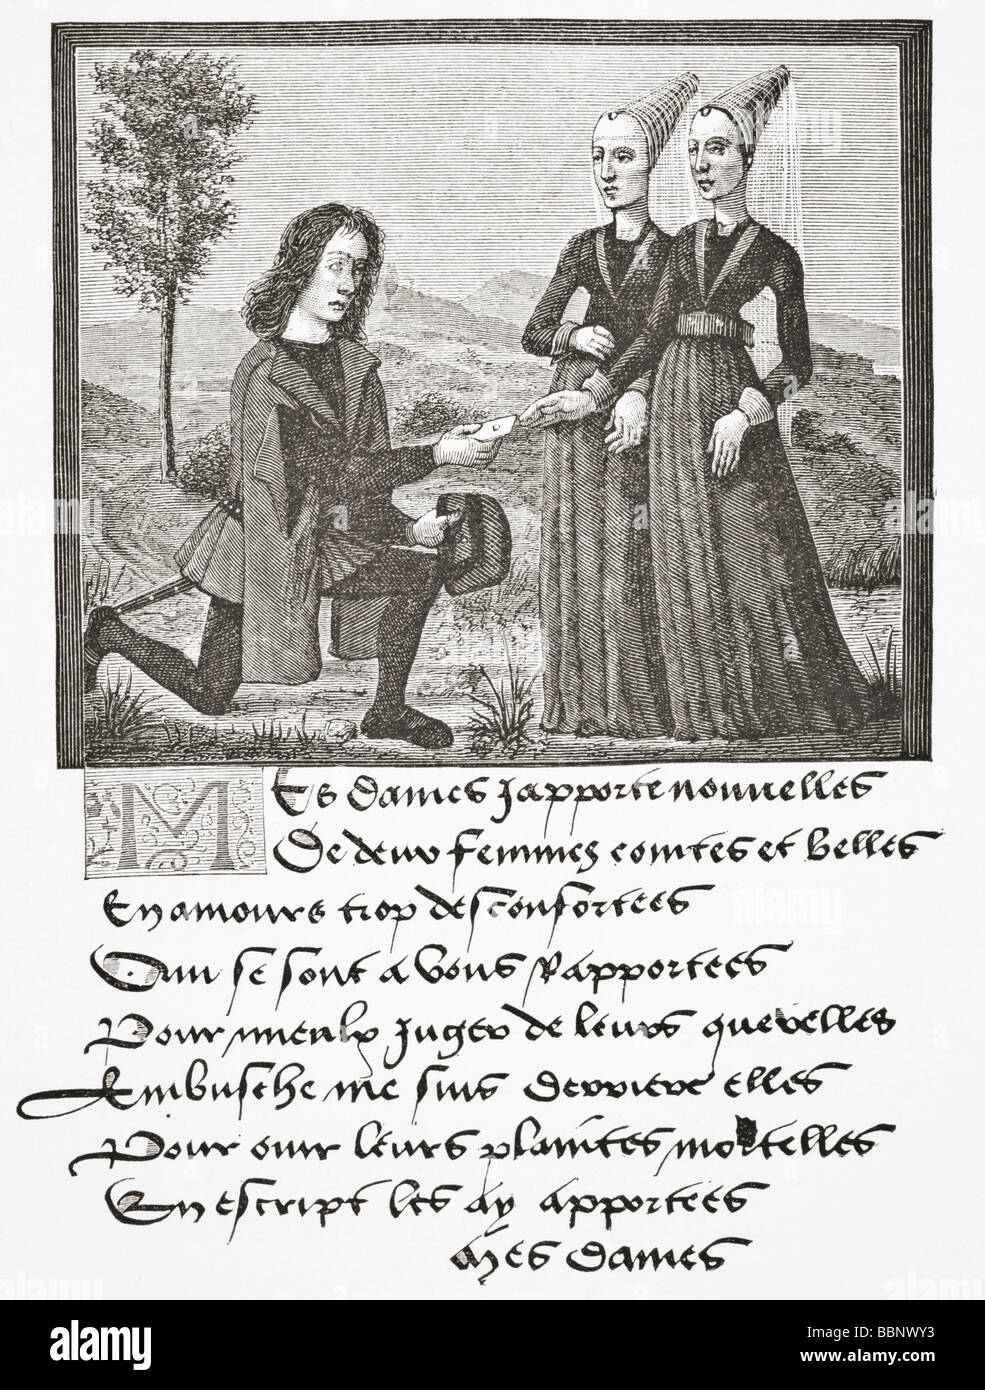 MEs dames japporte nouvelles
De deux femmes cointes et belles
En amours trop desconfortees
Qui se sont a vous Rapportees
Pour mieulx juger de leurs querelles
Embusche me suis derriere elles
Pour ouir leurs plaintes mortelles
En escript les ay apportees
mes dames
alamy
Image ID: BBNWY3
www.alamy.com